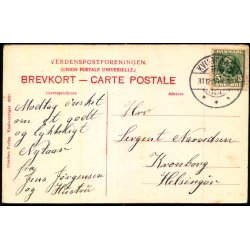 VERDENSPOSTFORENINGEN.
(UNION POSTALE UNIVERSELLE)
BREVKORT – CARTE POSTALE
Correspondance
Adresse:
Modtag ønsket
om et godt
og lykkeligt
Nytaar
fra
Jens Jørgensen
og Hustru
Hr
Sergent
Kronborg
Helsingør